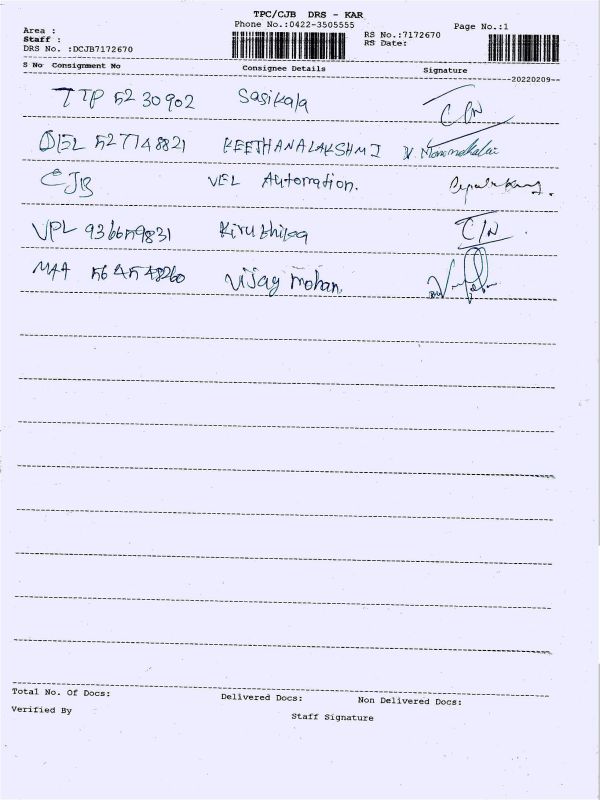 TPC/CJB DRS - KAR
Area : Phone No.:0422-3505555 RS No.:7172670 Page No.:1
Staff : RS Date:
DRS No. :DCJB7172670
S No Consignment No Consignee Details Signature
20220209
TTP 52 30902 Sasikala
DEL 527748821 KEETHANALAKSHMI
CJB VEL Automation.
VPL 936659831 Kiru
MAA 564548260 Vijay mohan.
Total No. Of Docs: Delivered Docs: Non Delivered Docs:
Verified By Staff Signature